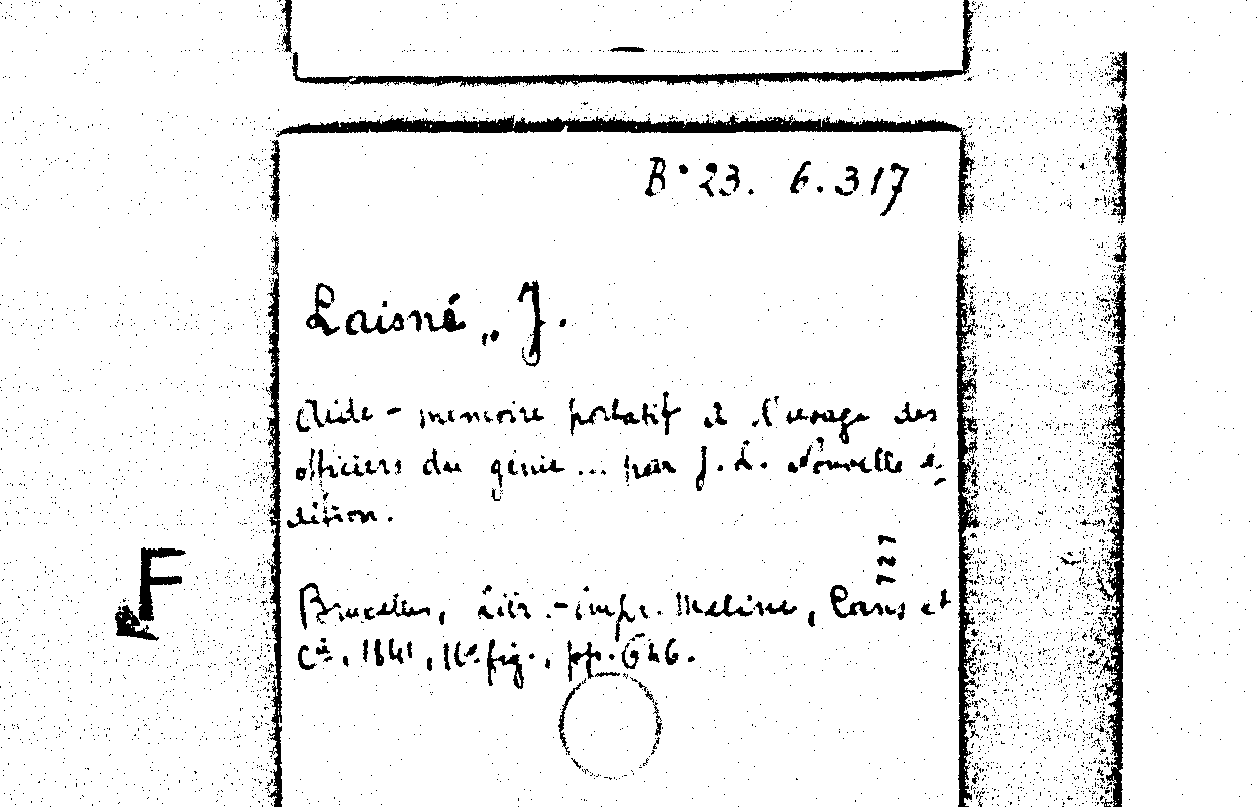 B° 23. 6.317
Laisné, J.
Aide-mémoire portatif à l'usage des
officiers du génie ... par J. L. Nouvelle é-
dition.
727
F
Bruxelles, Libr.-impr. Meline, Cans et
Cie, 1841, 16° fig., pp. 646.